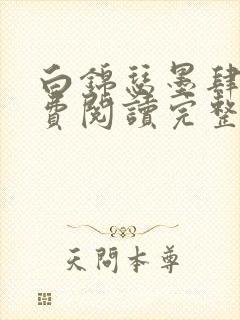 白錦瑟墨肆
費閱讀完整
天問本尊